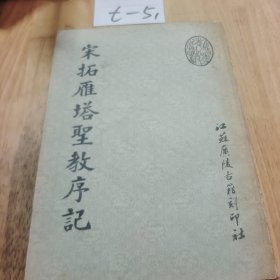 t-51
宋拓雁塔聖教序記
江蘇廣陵古籍刻印社